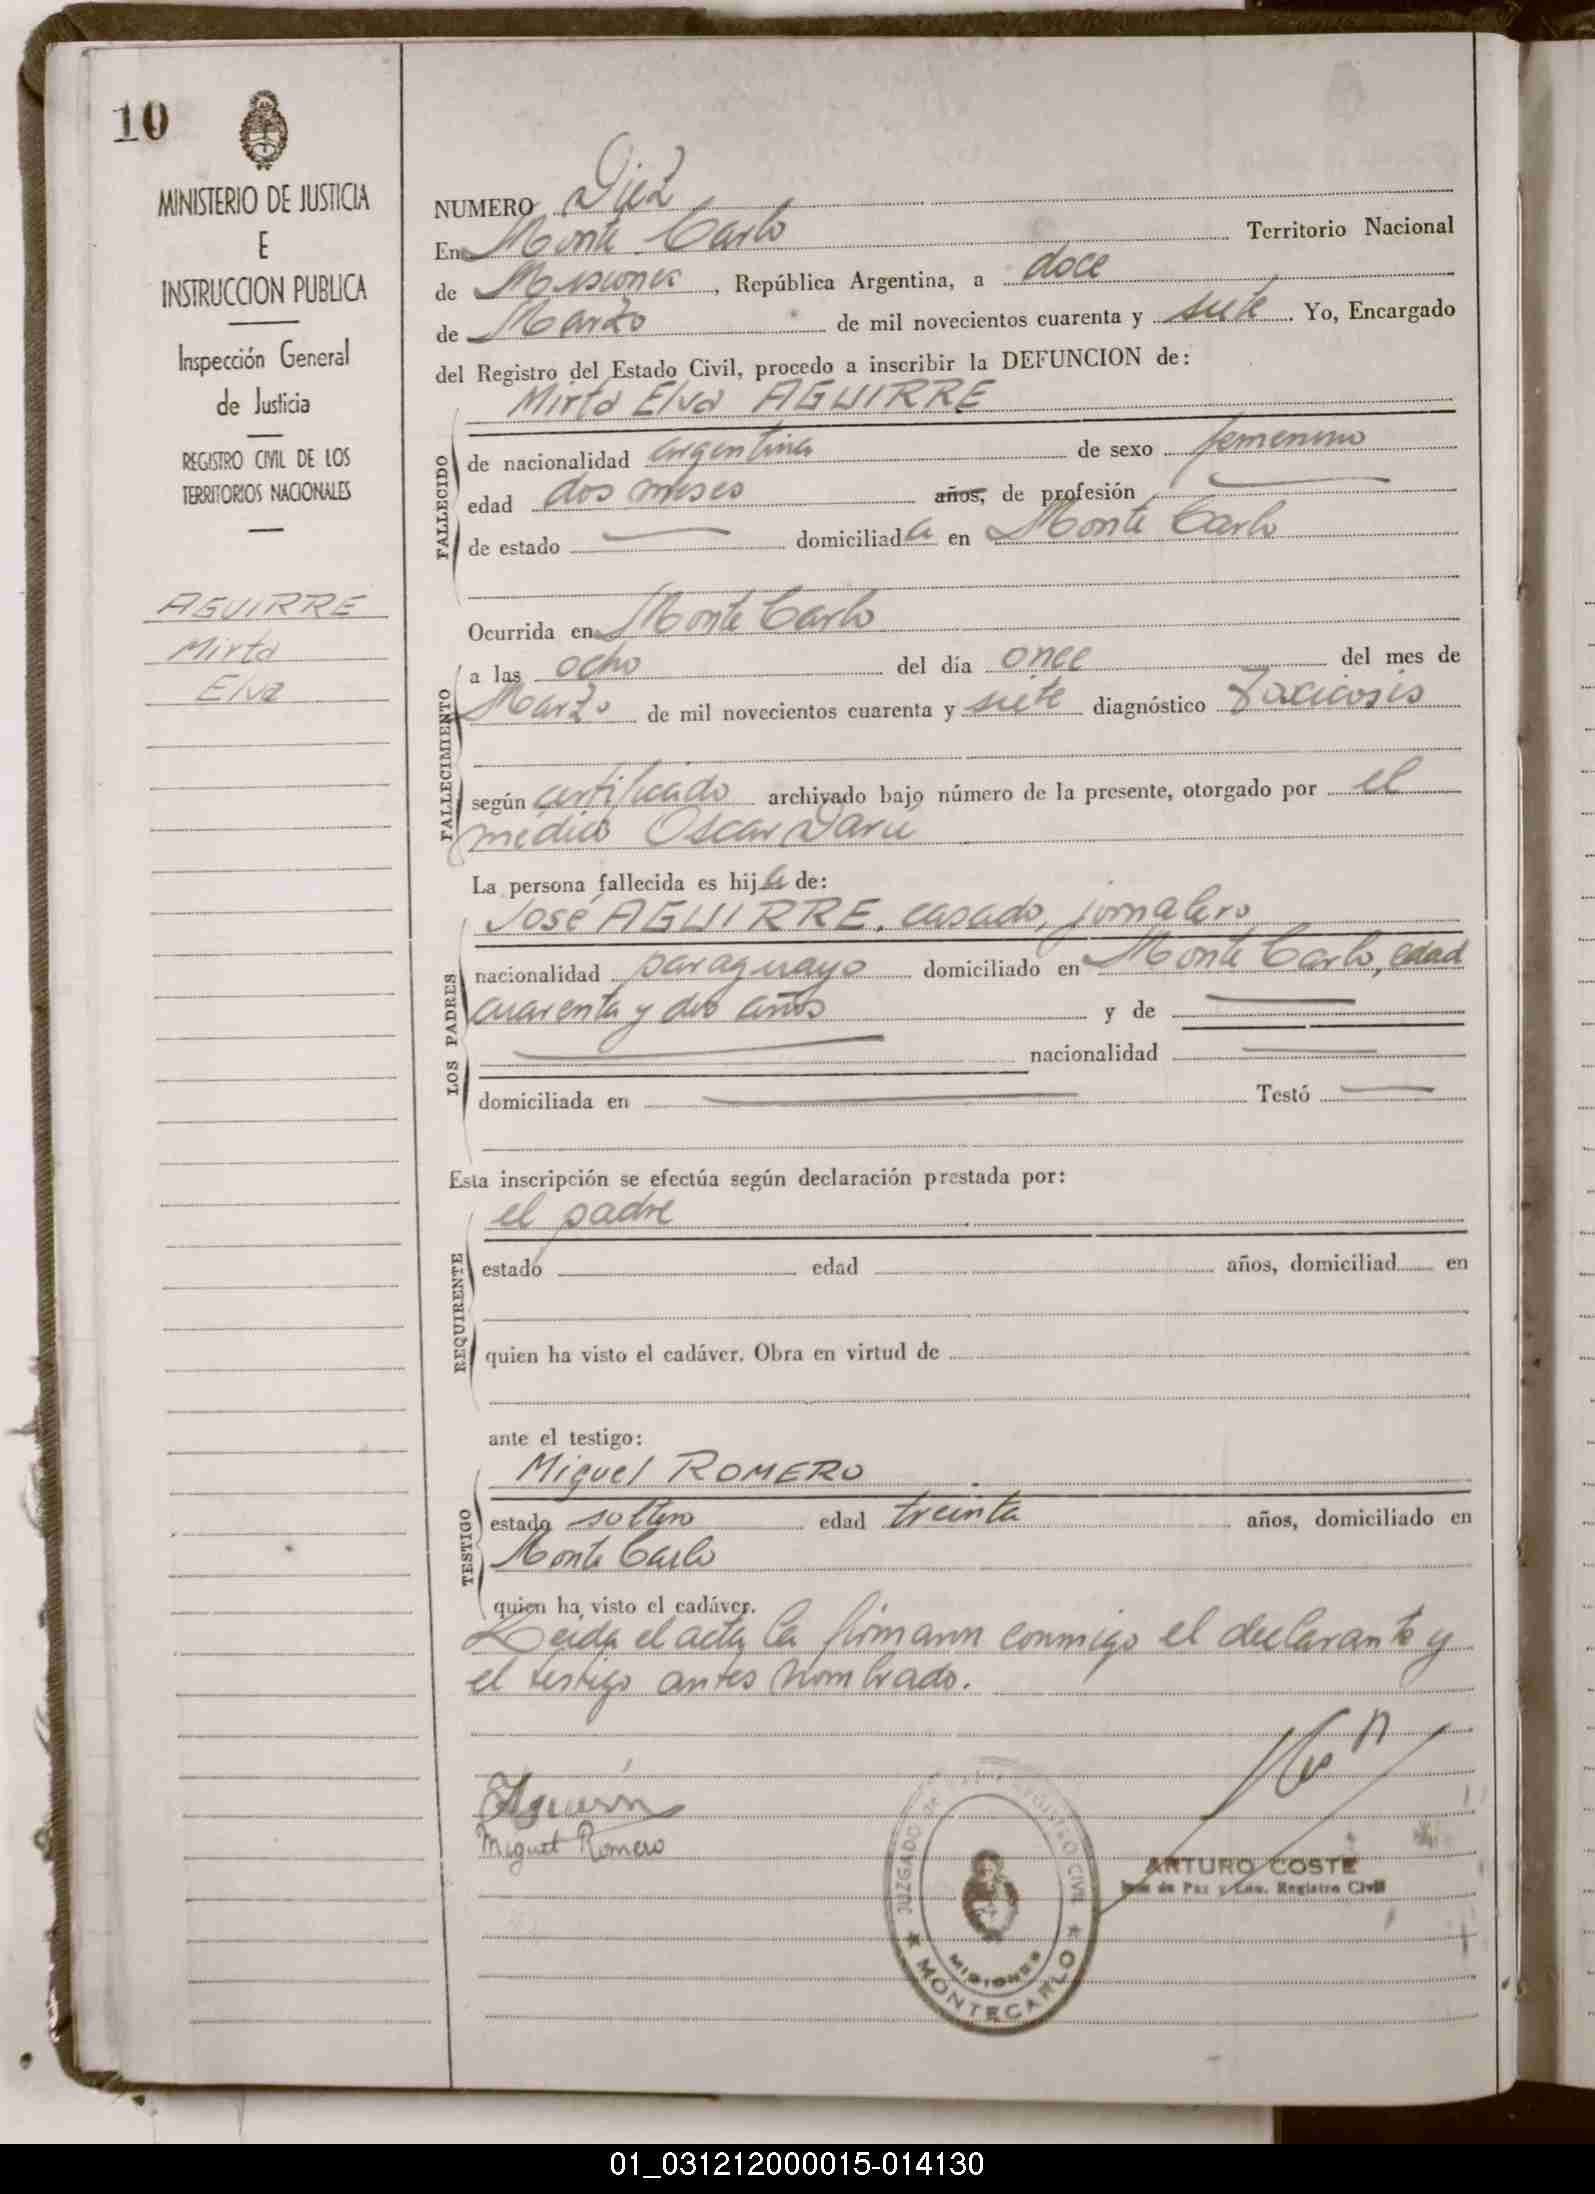 10
MINISTERIO DE JUSTICIA
E
INSTRUCCION PUBLICA
Inspección General
de Justicia
REGISTRO CIVIL DE LOS
TERRITORIOS NACIONALES
AGUIRRE
Mirta
Elva
NUMERO Diez
En Monte Carlo Territorio Nacional
de Misiones, República Argentina, a doce
de Marzo de mil novecientos cuarenta y siete. Yo, Encargado
del Registro del Estado Civil, procedo a inscribir la DEFUNCION de:
Mirta Elva AGUIRRE
FALLECIDO
de nacionalidad argentina de sexo femenino
edad dos meses años, de profesión
de estado domiciliada en Monte Carlo
Ocurrida en Monte Carlo
FALLECIMIENTO
a las ocho del día once del mes de
Marzo de mil novecientos cuarenta y siete diagnóstico Toxicosis
según certificado archivado bajo número de la presente, otorgado por el
médico Oscar Darú
La persona fallecida es hija de:
LOS PADRES
José AGUIRRE, casado, jornalero
nacionalidad paraguayo domiciliado en Monte Carlo, edad
cuarenta y dos años y de
nacionalidad
domiciliada en Testó
Esta inscripción se efectúa según declaración prestada por:
REQUIRENTE
el padre
estado edad años, domiciliad en
quien ha visto el cadáver. Obra en virtud de
ante el testigo:
TESTIGO
Miguel ROMERO
estado soltero edad treinta años, domiciliado en
Monte Carlo
quien ha visto el cadáver.
Leida el acta la firmaron conmigo el declarante y
el testigo antes nombrado.
Miguel Romero
JUZGADO DE PAZ Y REGISTRO CIVIL
MISIONES
★ MONTECARLO ★
ARTURO COSTE
Juez de Paz y Enc. Registro Civil
01_031212000015-014130